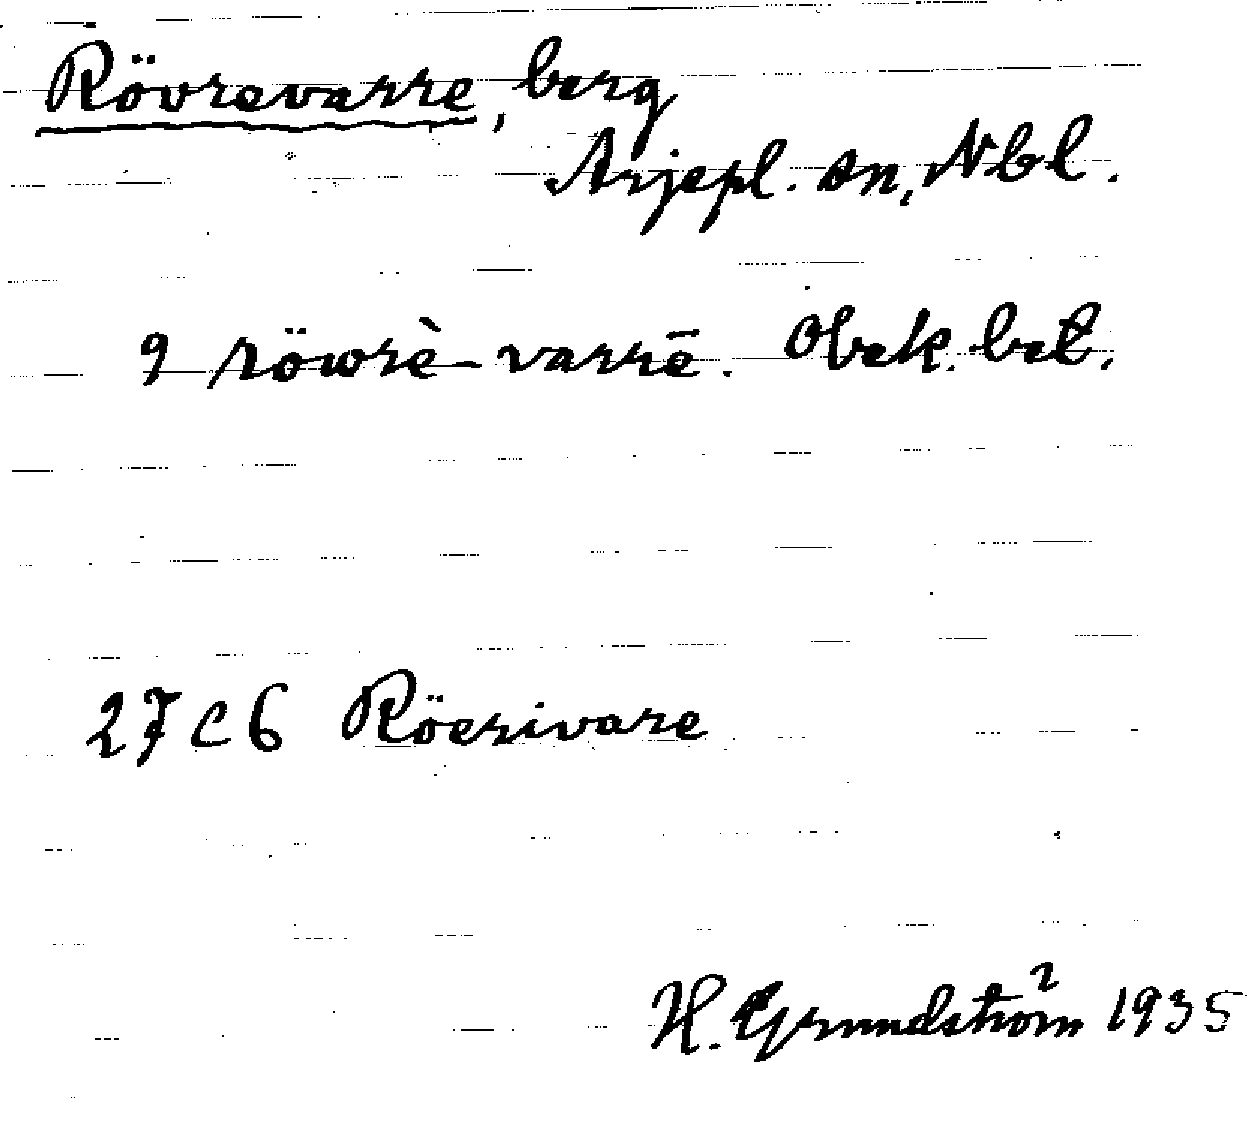 Rövrevarre, berg
Arjepl. sn, Nbl.
9 röwrè-varrē. Obek. bet.
27 C 6 Röerivare
H. Grundström 1935